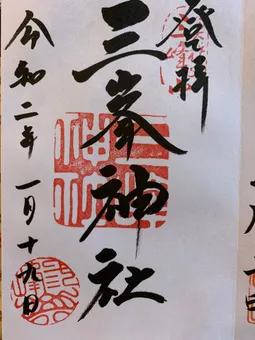 登拝
三峯神社
令和二年一月十九日